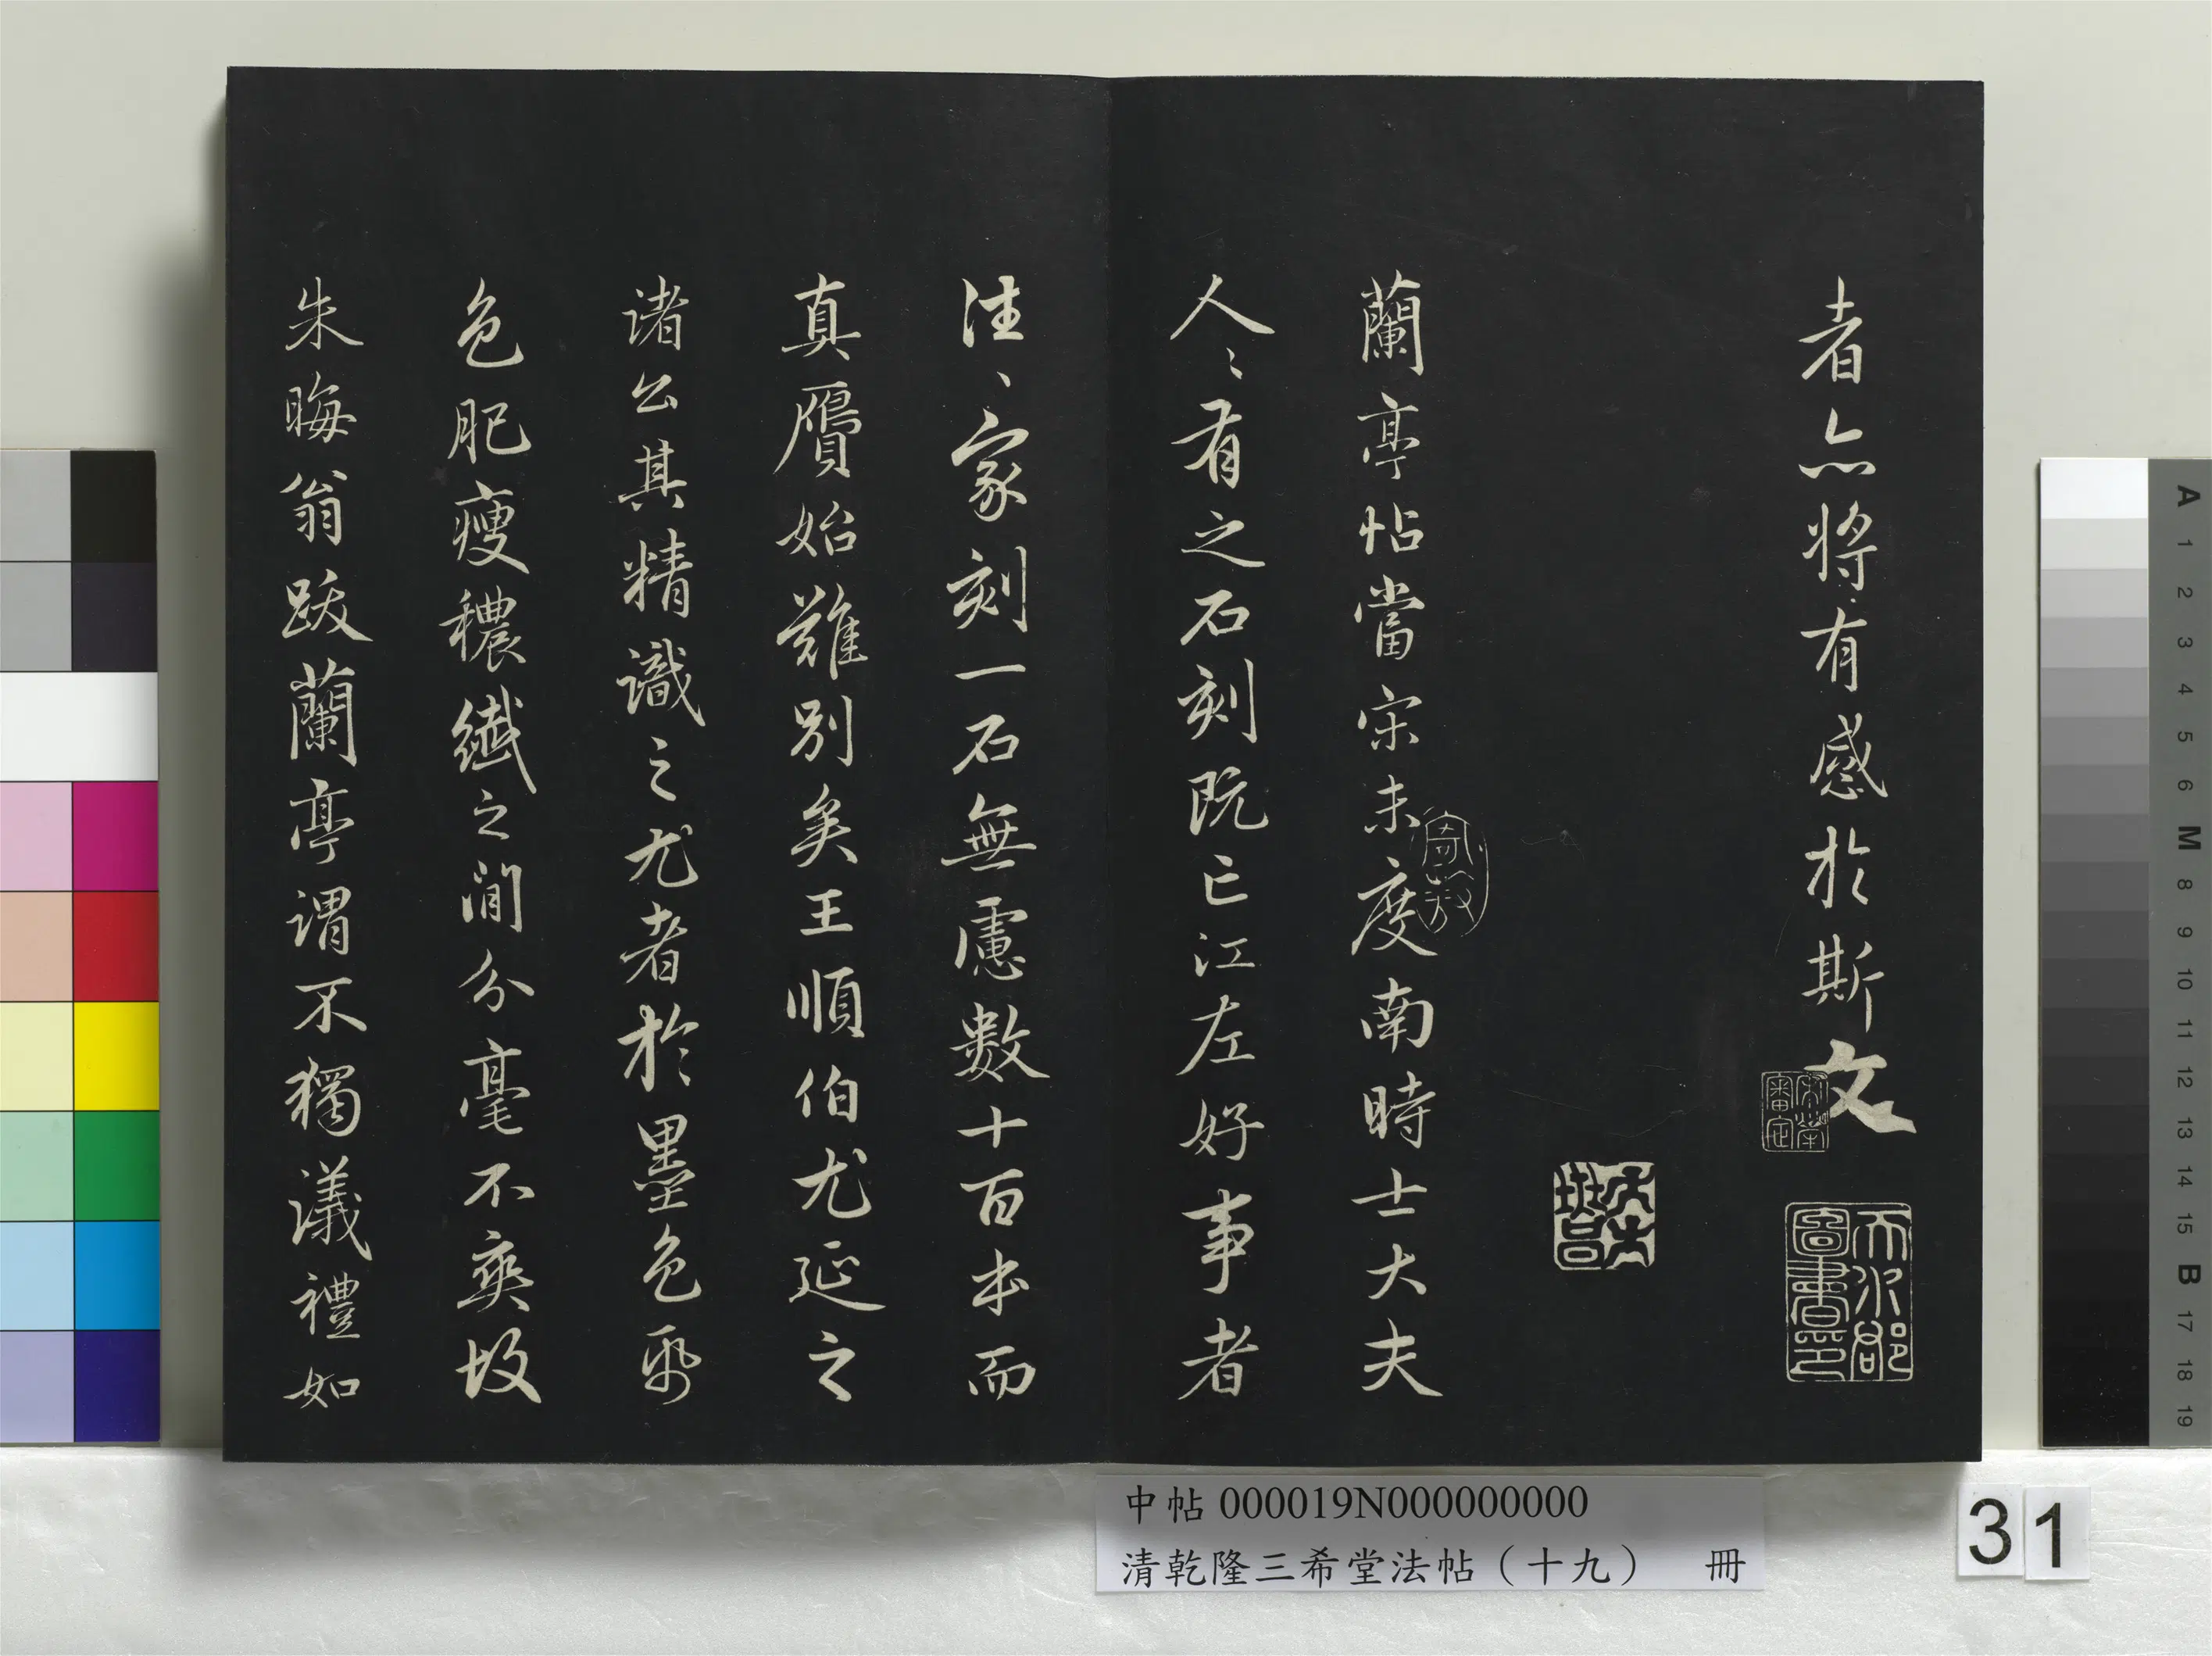 者亦將有感於斯文
天水郡圖書印
蘭亭帖當宋未度南時士大夫
人〻有之石刻既亡江左好事者
往〻家刻一石無慮數十百本而
真贗始難別矣王順伯尤延之
諸公其精識之尤者於墨色紙
色肥瘦穠纖之間分毫不爽故
朱晦翁跋蘭亭謂不獨議禮如
中帖 000019N000000000
清乾隆三希堂法帖（十九） 冊
31
A 1 2 3 4 5 6 M 8 9 10 11 12 13 14 15 B 17 18 19